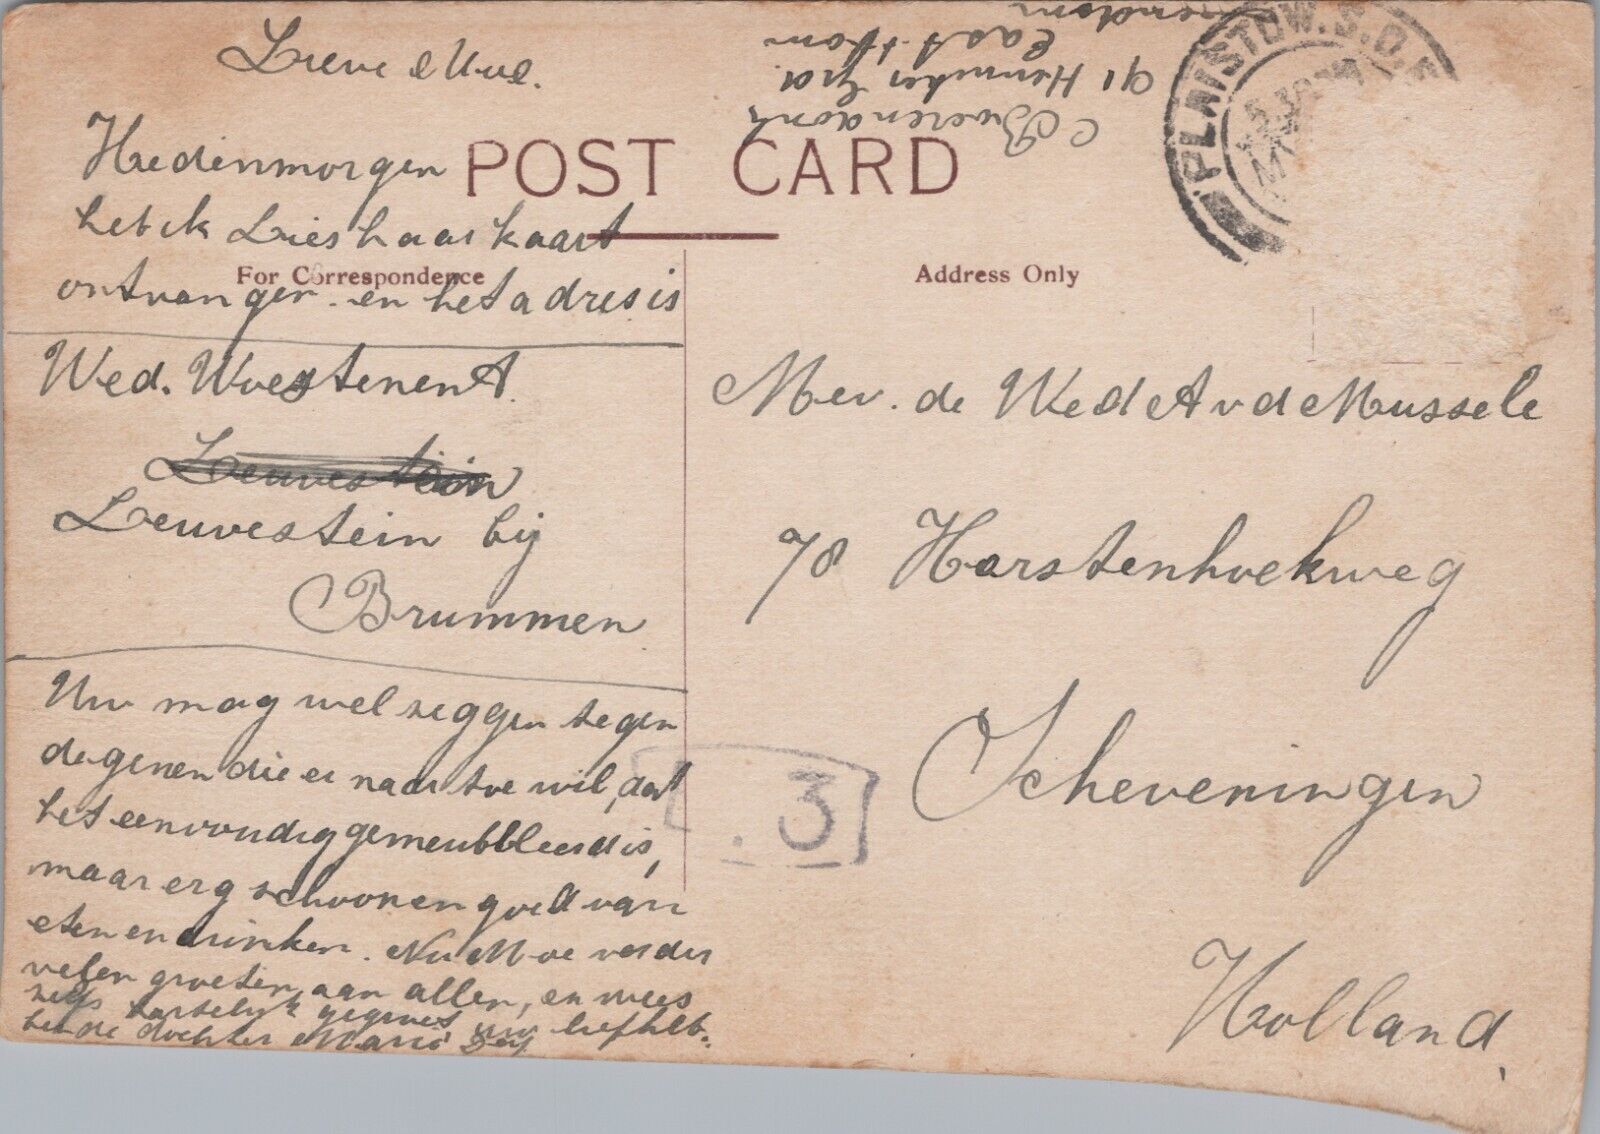 Lieve Moe.
Hedenmorgen
heb ik Lies haar kaart
ontvangen en het adres is
Wed. Woestenenk
Leuvestein
Leuvestein bij
Brummen
Uw mag wel zeggen tegen
degenen die er naar toe wil, dat
het eenvoudig gemeubbleerd is,
maar erg schoon en goed van
eten en drinken. Nu Moe verder
velen groeten aan allen, en wees
zelfs hartelijk gegroet uw liefheb-
bende dochter Marie
POST CARD
For Correspondence
Address Only
91 Henniker
East Ham
PLAISTOW. S.O.
Mev. de Wed A v d Mussele
78 Harstenhoekweg
Scheveningen
Holland
.3